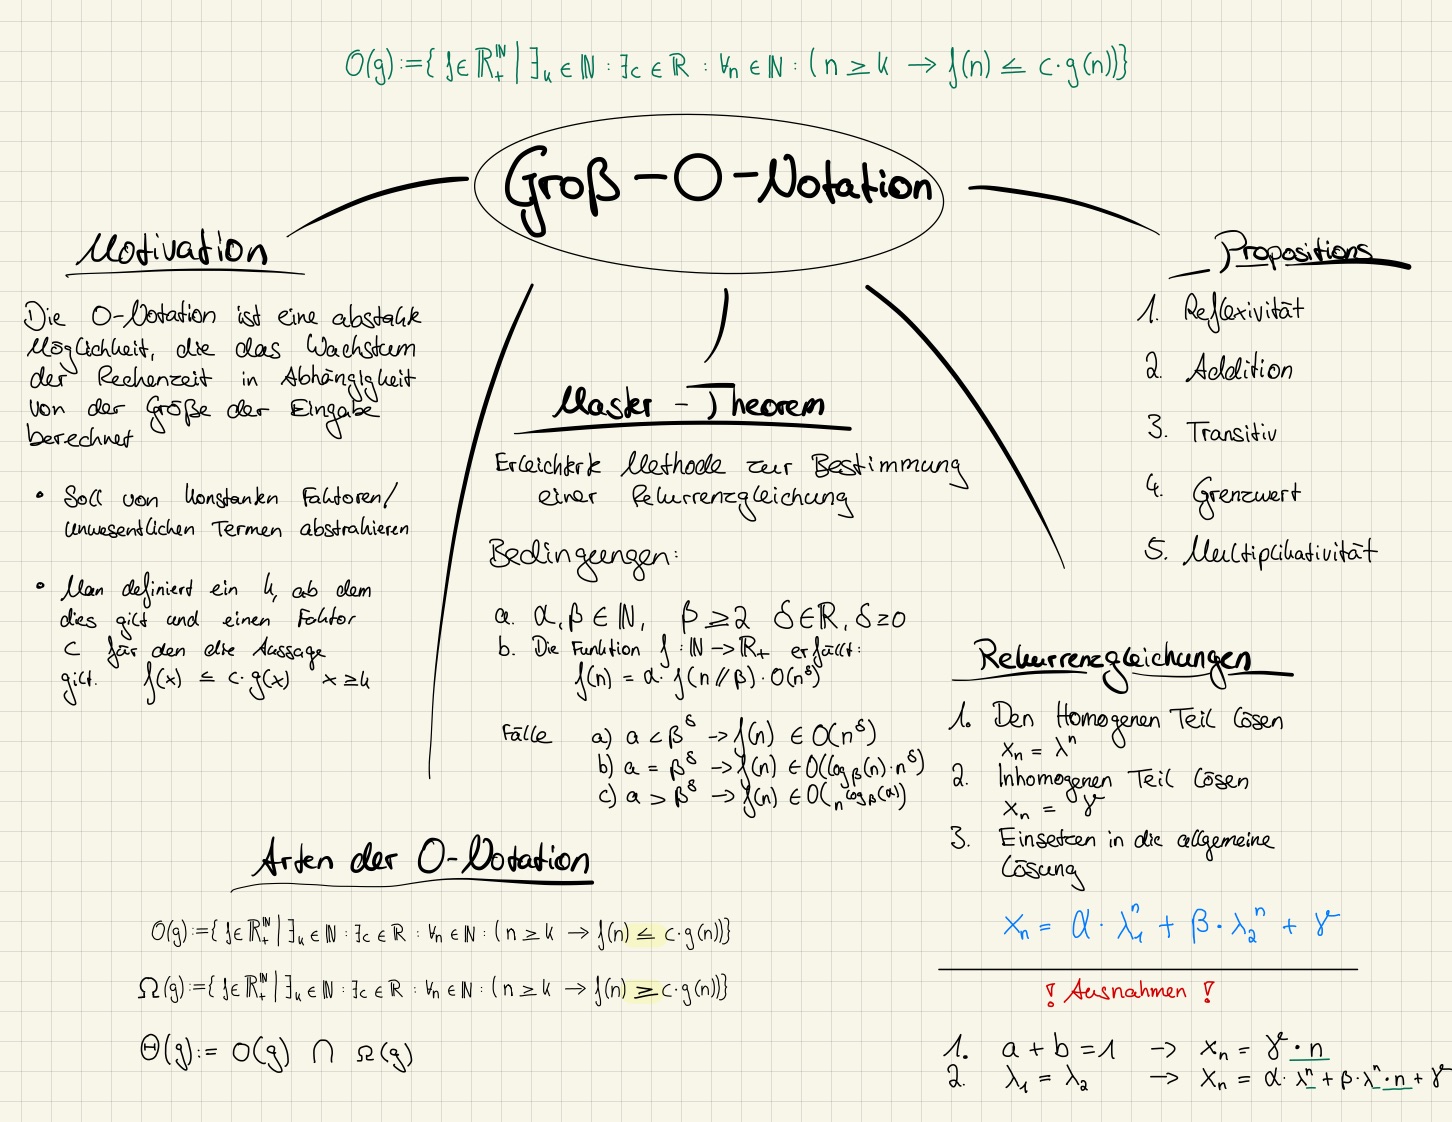 O(g):={ f∈ℝ₊^ℕ | ∃k ∈ ℕ : ∃c ∈ ℝ : ∀n ∈ ℕ : ( n ≥ k → f(n) ≤ c·g(n))}
Groß-O-Notation
Motivation
Die O-Notation ist eine abstakte
Möglichkeit, die das Wachstum
der Rechenzeit in Abhängigkeit
von der Größe der Eingabe
berechnet
• Soll von konstanten Faktoren/
unwesentlichen Termen abstrahieren
• Man definiert ein k, ab dem
dies gilt und einen Faktor
c für den die Aussage
gilt. f(x) ≤ c·g(x) x ≥ k
Master-Theorem
Erleichterte Methode zur Bestimmung
einer Rekurrenzgleichung
Bedingungen:
a. α,β ∈ ℕ, β ≥ 2 δ∈ℝ, δ≥0
b. Die Funktion f : ℕ → ℝ₊ erfüllt:
f(n) = α· f(n // β) · O(n^δ)
Fälle a) a < β^δ → f(n) ∈ O(n^δ)
b) a = β^δ → f(n) ∈ O(log_β(n)·n^δ)
c) a > β^δ → f(n) ∈ O(n^log_β(α))
Propositions
1. Reflexivität
2. Addition
3. Transitiv
4. Grenzwert
5. Multiplikativität
Rekurrenzgleichungen
1. Den Homogenen Teil lösen
xₙ = λⁿ
2. Inhomogenen Teil lösen
xₙ = γ
3. Einsetzen in die allgemeine
Lösung
xₙ = α · λ₁ⁿ + β · λ₂ⁿ + γ
! Ausnahmen !
1. a + b = 1 → xₙ = γ · n
2. λ₁ = λ₂ → xₙ = α · λⁿ + β · λⁿ · n + γ
Arten der O-Notation
O(g):={ f∈ℝ₊^ℕ | ∃k ∈ ℕ : ∃c ∈ ℝ : ∀n ∈ ℕ : ( n ≥ k → f(n) ≤ c·g(n))}
Ω(g):={ f∈ℝ₊^ℕ | ∃k ∈ ℕ : ∃c ∈ ℝ : ∀n ∈ ℕ : ( n ≥ k → f(n) ≥ c·g(n))}
Θ(g):= O(g) ∩ Ω(g)